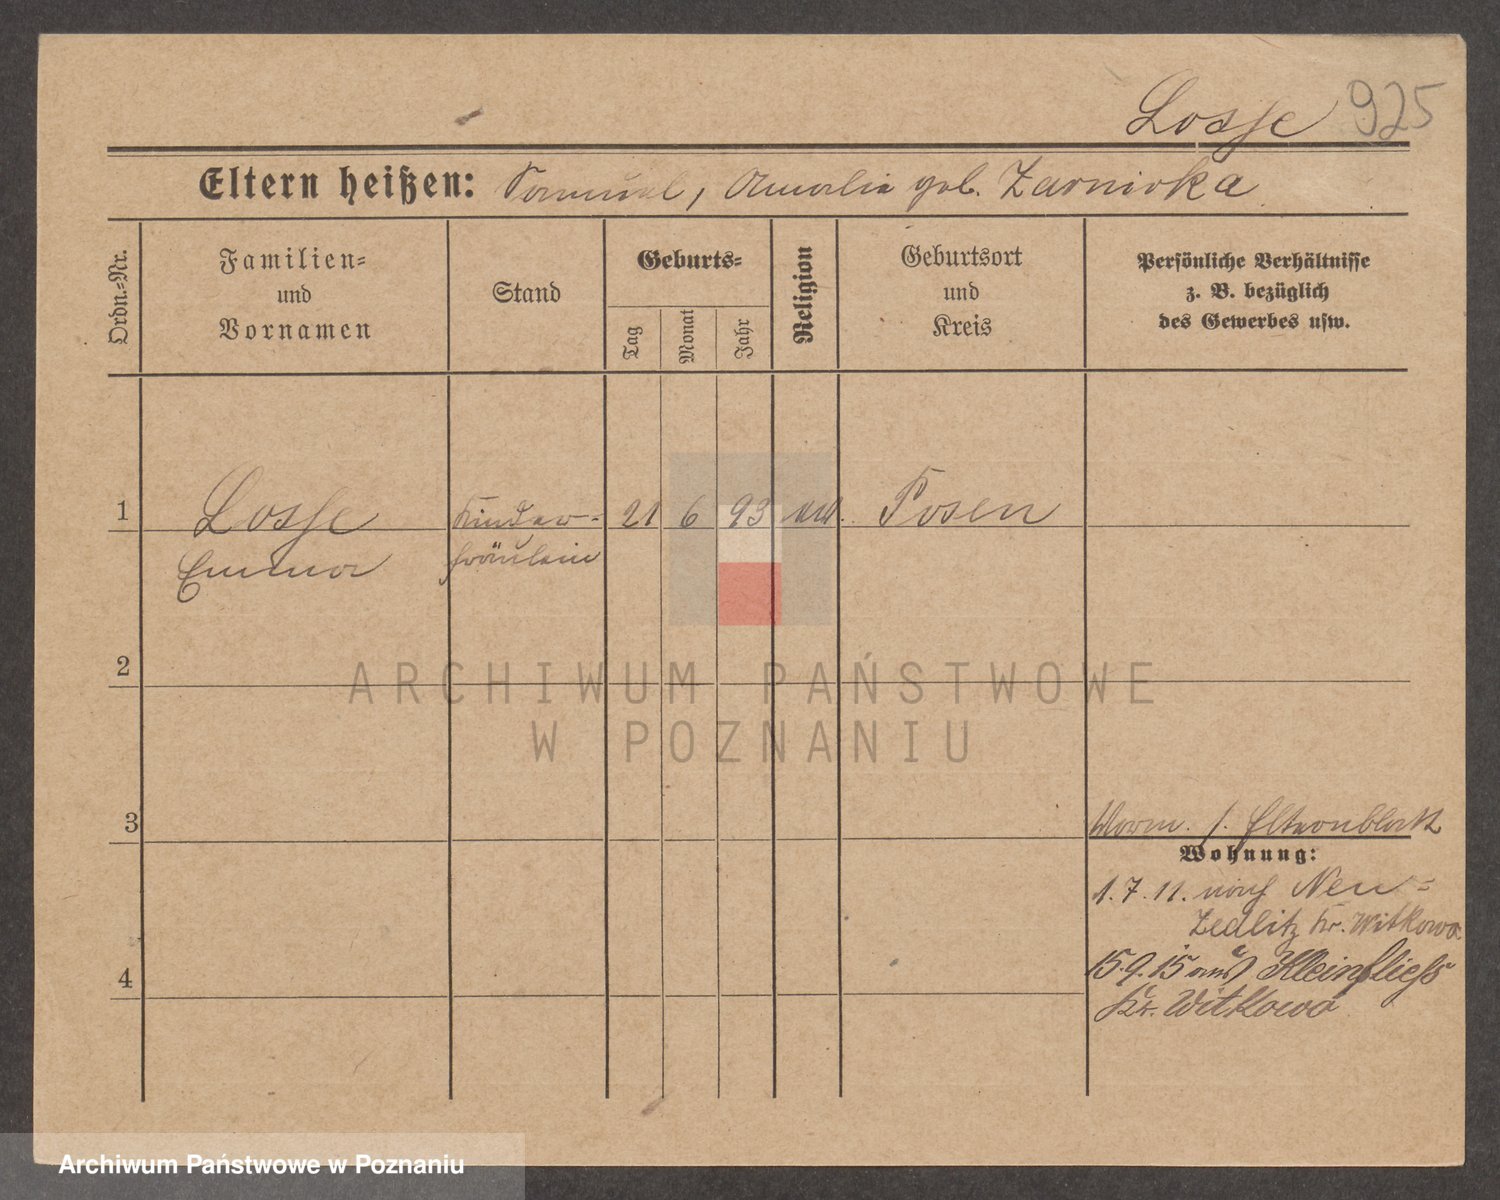 Losse 925
Eltern heißen: Samuel, Amalie geb. Zarnicka
Ordn.-Nr.
Familien-
und
Vornamen
Stand
Geburts-
Tag
Monat
Jahr
Religion
Geburtsort
und
Kreis
Persönliche Verhältnisse
z. B. bezüglich
des Gewerbes usw.
1 Losse Kinder- 21 6 93 Posen
Emma fräulein
2
3
Vorm. s. Elternblatt
Wohnung:
1.7.11. nach Neu-
Zedlitz Kr. Witkowo
4
15.9.15 aus Kleinfliess
Kr. Witkowo
ARCHIWUM PAŃSTWOWE
W POZNANIU
Archiwum Państwowe w Poznaniu